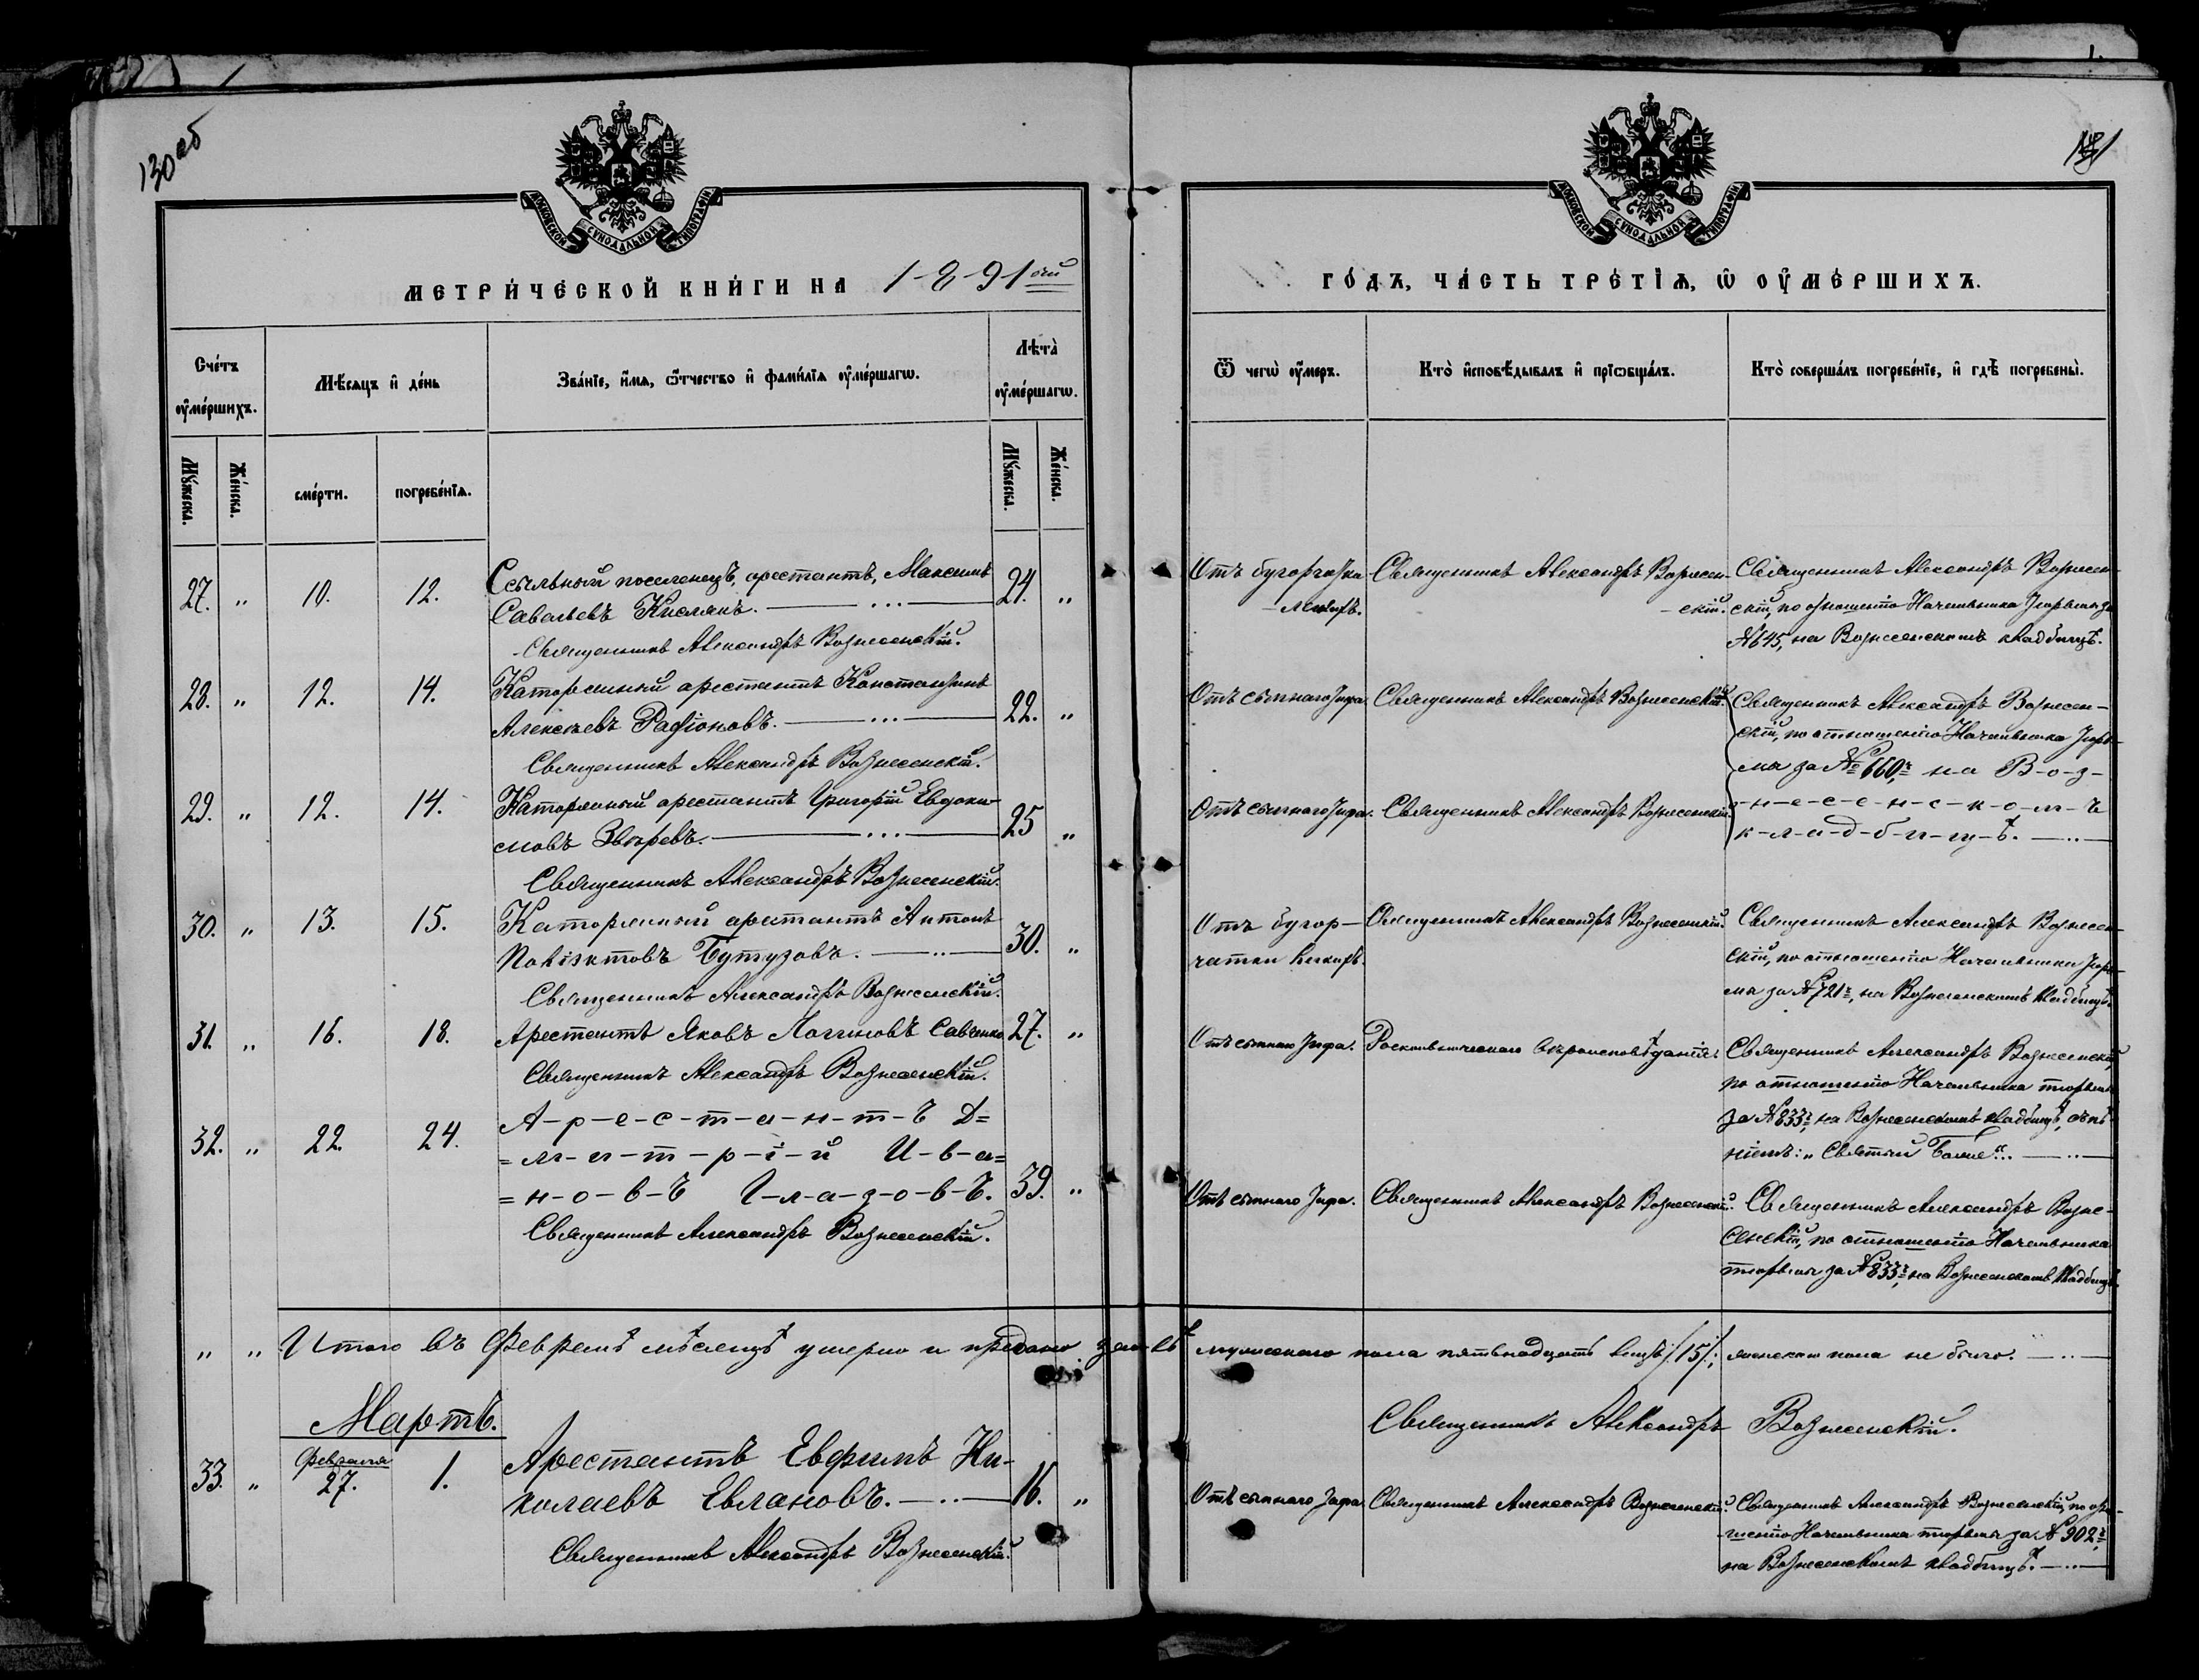 130 об
131
МОСКОВСКОЙ СѴНОДАЛЬНОЙ ТИПОГРАФІИ
МОСКОВСКОЙ СѴНОДАЛЬНОЙ ТИПОГРАФІИ
МЕТРИ́ЧЕСКОЙ КНИ́ГИ НА 1-8-91 ый
ГО́ДЪ, ЧА́СТЬ ТРЕ́ТІѦ, Ѡ҆ ОУ҆МЕ́РШИХЪ.
Сче́тъ оу҆ме́ршихъ.
Мꙋ́жеска.
Же́нска.
Мѣ́сѧцъ и҆ де́нь
сме́рти.
погребе́нїѧ.
Зва́нїе, и҆́мѧ, ѻ҆́тчество и҆ фами́лїѧ оу҆ме́ршагѡ.
Лѣта̀ оу҆ме́ршагѡ.
Мꙋ́жеска.
Же́нска.
Ѿ чегѡ̀ оу҆́меръ.
Кто̀ и҆сповѣ́дывалъ и҆ прїѡбща́лъ.
Кто̀ соверша́лъ погребе́нїе, и҆ гдѣ̀ погребены̀.
27. " 10. 12. Ссыльный поселенецъ, арестантъ, Максимъ
Савельевъ Кислякъ. 24. "
Священникъ Александръ Вознесенскій.
Отъ бугорчатки
легкихъ.
Священникъ Александръ Вознесен-
скій.
Священникъ Александръ Вознесен-
скій, по отношенію Начальника Тюрьмы за
№ 645, на Вознесенскомъ кладбищѣ.
28. " 12. 14. Каторжный арестантъ Константинъ
Алексѣевъ Радіоновъ. 22. "
Священникъ Александръ Вознесенскій.
Отъ сыпнаго тифа. Священникъ Александръ Вознесенскій.
Священникъ Александръ Вознесен-
скій, по отношенію Начальника Тюрь-
мы за № 660, на В-о-з-
-н-е-с-е-н-с-к-о-м-ъ
к-л-а-д-б-и-щ-ѣ.
29. " 12. 14. Каторжный арестантъ Григорій Евдоки-
мовъ Звѣревъ. 25 "
Священникъ Александръ Вознесенскій.
Отъ сыпнаго тифа. Священникъ Александръ Вознесенскій.
30. " 13. 15. Каторжный арестантъ Антонъ
Бутузовъ. 30. "
Священникъ Александръ Вознесенскій.
Отъ бугор-
чатки легкихъ.
Священникъ Александръ Вознесенскій.
Священникъ Александръ Вознесен-
скій, по отношенію Начальника Тюрь-
мы за № 721, на Вознесенскомъ кладбищѣ.
31. " 16. 18. Арестантъ Яковъ Логиновъ Савченко 27. "
Священникъ Александръ Вознесенскій.
Отъ сыпнаго тифа. Раскольническаго вѣроисповѣданія.
Священникъ Александръ Вознесенскій,
по отношенію Начальника тюрьмы
за № 833, на Вознесенскомъ кладбищѣ, съ пѣ-
ніемъ: „Святый Боже".
32. " 22. 24. А-р-е-с-т-а-н-т-ъ Д=
=м-и-т-р-і-й И-в-а=
=н-о-в-ъ Г-л-а-з-о-в-ъ. 39. "
Священникъ Александръ Вознесенскій.
Отъ сыпнаго тифа. Священникъ Александръ Вознесенскій.
Священникъ Александръ Возне-
сенскій, по отношенію Начальника
тюрьмы за № 833, на Вознесенскомъ кладбищѣ.
" " Итого въ Февралѣ мѣсяцѣ умерло и предано землѣ мужескаго пола пятнадцать лицъ /15/; женскаго пола не было.
Священникъ Александръ Вознесенскій.
Мартъ.
33. " Февраля 27. 1. Арестантъ Евфимъ Ни-
колаевъ Евлановъ. 16. "
Священникъ Александръ Вознесенскій.
Отъ сыпнаго тифа. Священникъ Александръ Вознесенскій.
Священникъ Александръ Вознесенскій, по отно-
шенію Начальника тюрьмы за № 902,
на Вознесенскомъ кладбищѣ.